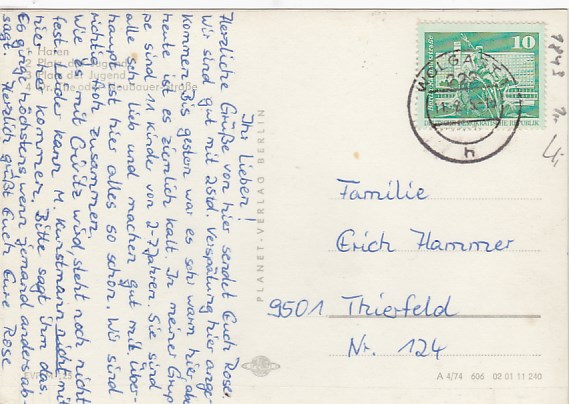 Ihr Lieben!
Herzliche Grüße von hier sendet Euch Rose.
Wir sind gut mit 2 Std. Verspätung hier ange-
kommen. Bis gestern war es sehr warm hier, aber
heute ist es ziemlich kalt. In meiner Grup-
pe sind 11 Kinder von 2-7 Jahren. Sie sind
alle sehr lieb und machen gut mit. Über-
haupt ist hier alles so schön. Wir sind
richtig froh zusammen.
Wie es mit wird, steht noch nicht
fest. Leider kann M. Kunstmann nicht mit
hier her kommen. Bitte sagt ihm das.
Es ginge höchstens wenn jemand anders ab-
sagt. Herzlich grüßt Euch Eure Rose
1 Hafen
2 Platz der Jugend
3 Platz der Jugend
4 Dr.-Theodor-Neubauer-Straße
PLANET-VERLAG BERLIN
10
WOLGAST
DEUTSCHE DEMOKRATISCHE REPUBLIK
Familie
Erich Hammer
9501 Thierfeld
Nr. 124
A 4/74 606 02 01 11 240